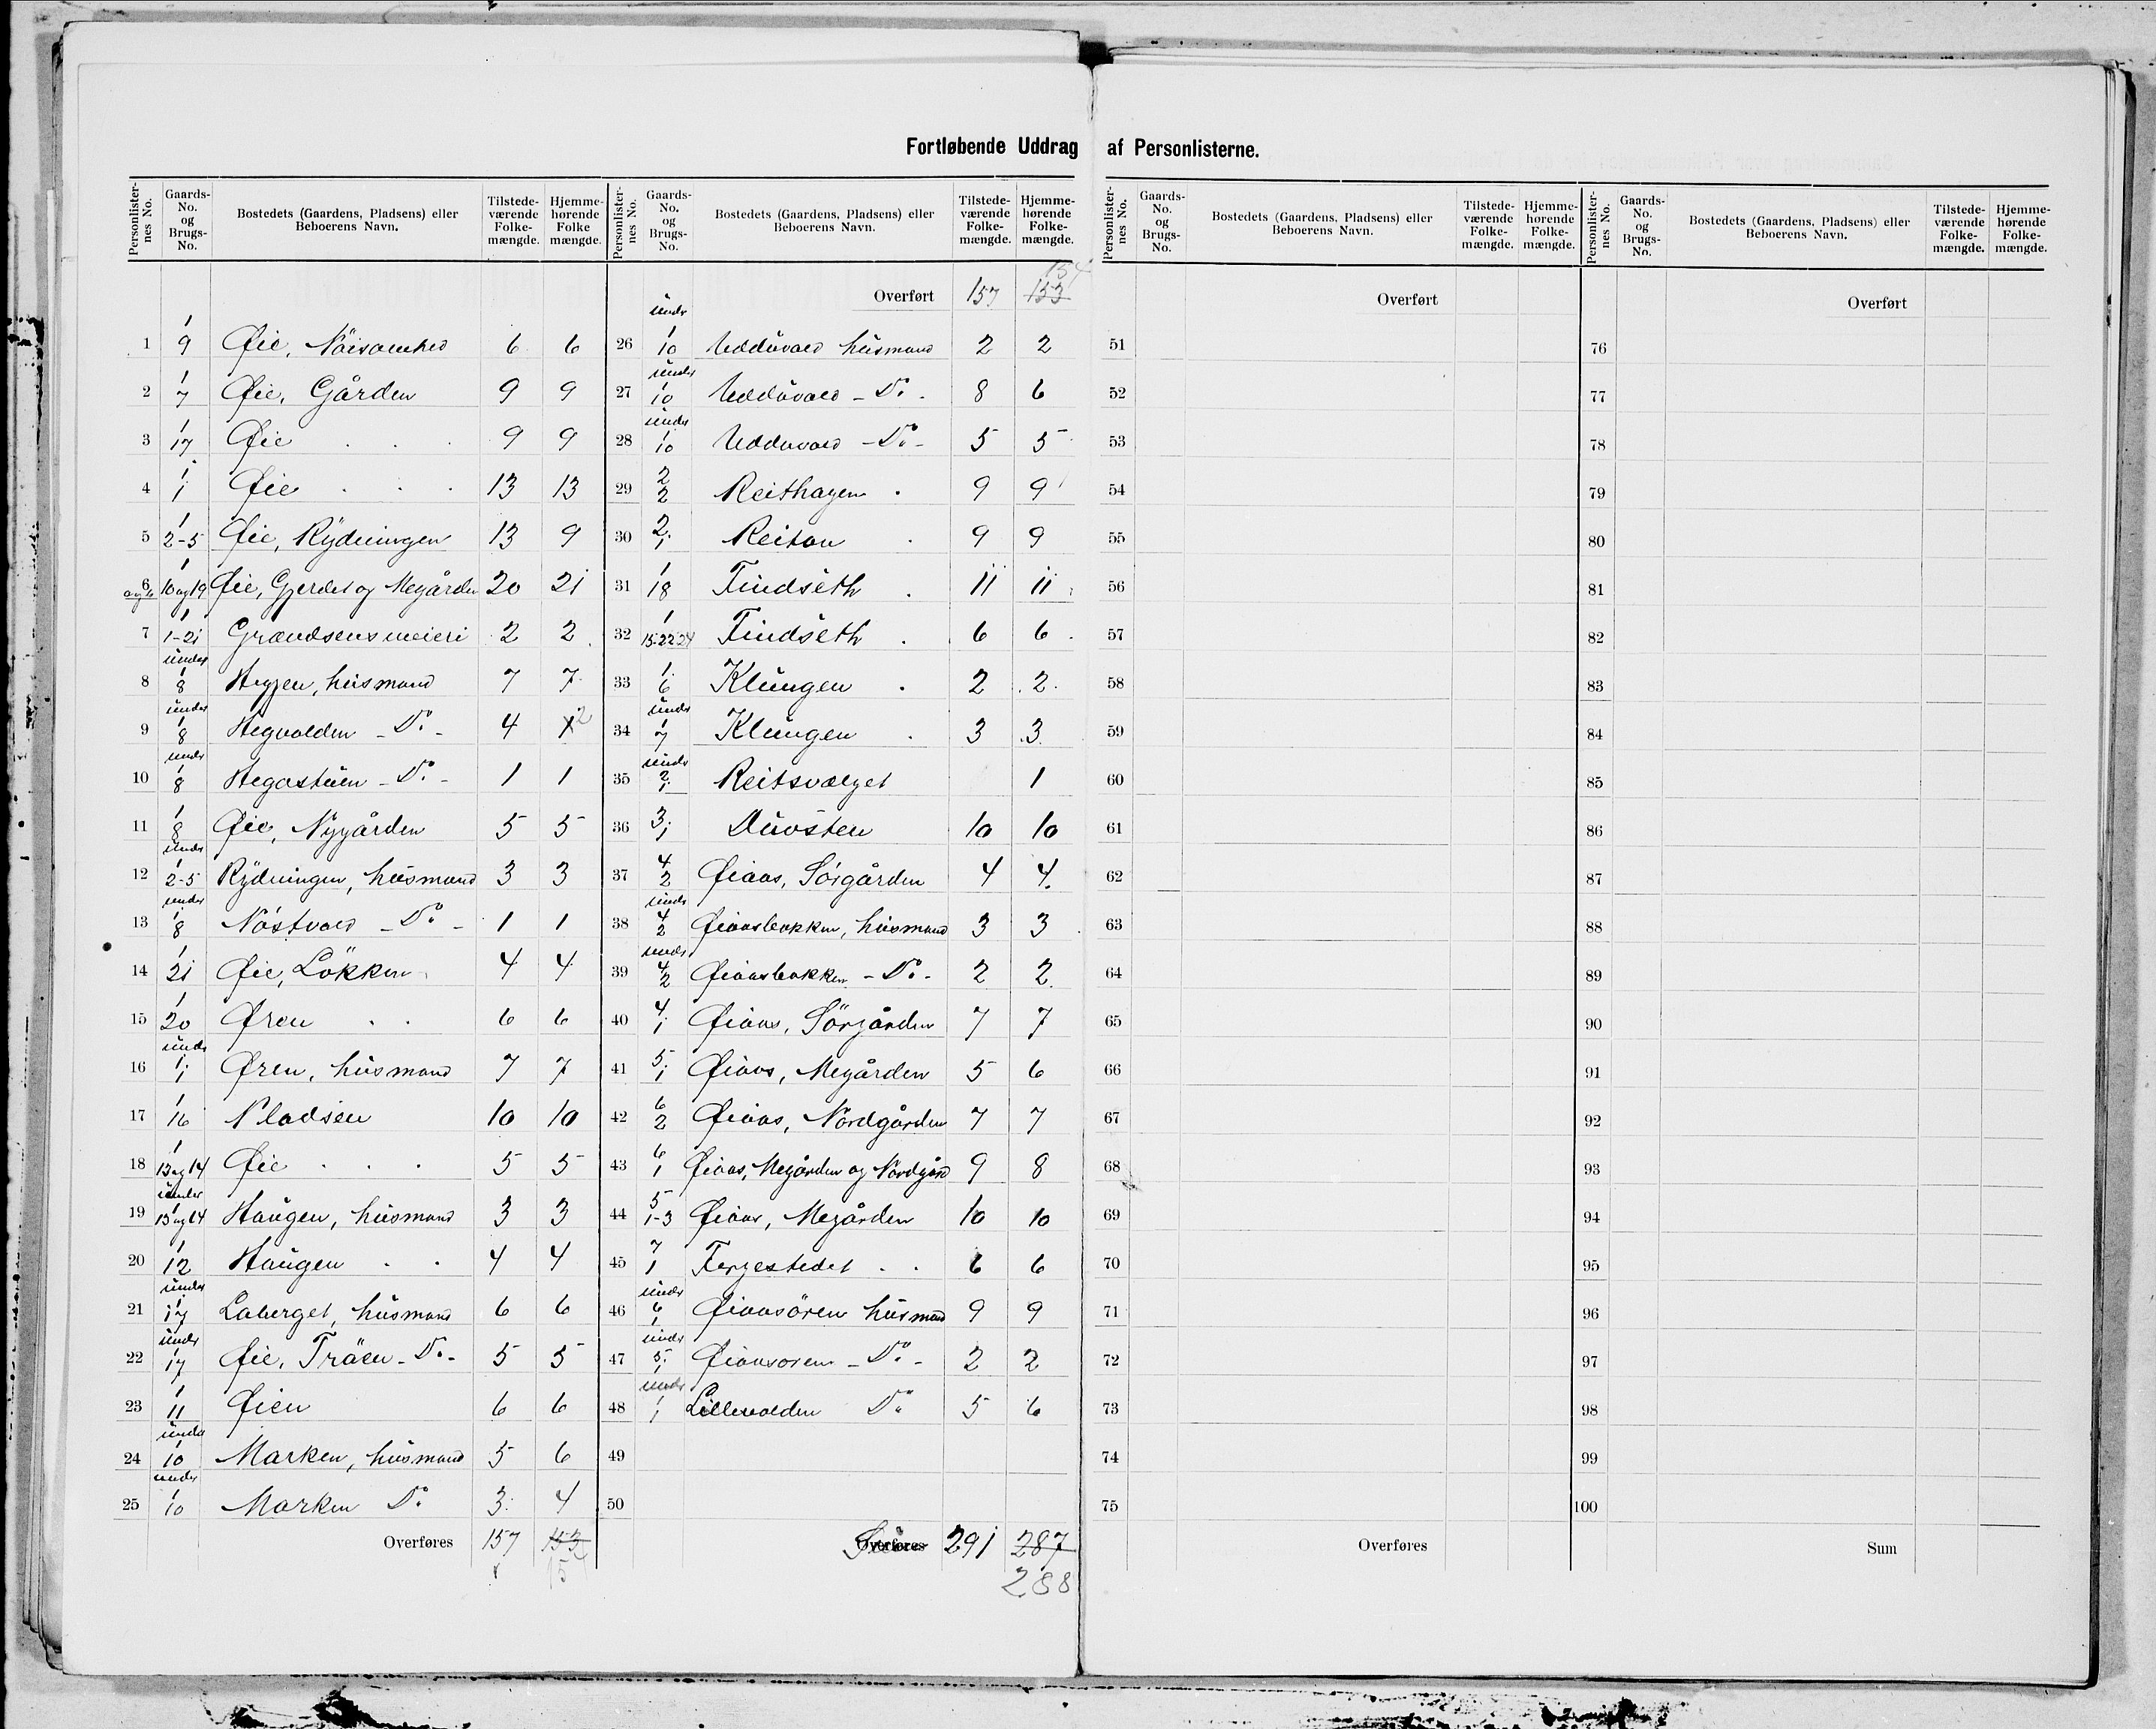 Fortløbende Uddrag af Personlisterne.
Personlister-nes No. Gaards-No. og Brugs-No. Bostedets (Gaardens, Pladsens) eller Beboerens Navn. Tilstede-værende Folke-mængde. Hjemme-hørende Folke mængde.
1 1/9 Øie, Nöisomhed 6 6
2 1/7 Øie, Gården 9 9
3 1/17 Øie 9 9
4 1/1 Øie 13 13
5 1/2-5 Øie, Rydningen 13 9
6 1/10 og 19 Øie, Gjerdet og Megården 20 21
7 1/1-21 Grændsens meieri 2 2
8 under 1/8 Heggen, husmand 7 7
9 under 1/8 Hegvolden - Do - 4 2
10 under 1/8 Hegastuen - Do - 1 1
11 1/8 Øie, Nygården 5 5
12 under 1/2-5 Rydningen, husmand 3 3
13 under 1/8 Nöstvold - Do - 1 1
14 1/21 Øie, Lökken 4 4
15 1/20 Øren 6 6
16 under 1/1 Øren, husmand 7 7
17 1/16 Pladsen 10 10
18 1/13 og 14 Øie 5 5
19 under 1/13 og 14 Haugen, husmand 3 3
20 1/12 Haugen 4 4
21 under 1/17 Laberget, husmand 6 6
22 under 1/17 Øie, Tröen - Do - 5 5
23 1/11 Øien 6 6
24 under 1/10 Marken, husmand 5 6
25 under 1/10 Marken Do 3 4
Overføres 157 153
Personlister-nes No. Gaards-No. og Brugs-No. Bostedets (Gaardens, Pladsens) eller Beboerens Navn. Tilstede-værende Folke-mængde. Hjemme-hørende Folke-mængde.
154
Overført 157 153
26 under 1/10 Udduvold husmand 2 2
27 under 1/10 Udduvold - Do - 8 6
28 under 1/10 Udduvold - Do - 5 5
29 2/2 Reithagen 9 9
30 2/1 Reitan 9 9
31 1/18 Tindseth 11 11
32 1/15.22.24 Tindseth 6 6
33 1/6 Klungen 2 2
34 under 1/7 Klungen 3 3
35 under 2/1 Reitsvælget 1
36 3/1 Duosten 10 10
37 4/2 Øiaas, Sörgården 4 4
38 under 4/2 Øiaasbakken, husmand 3 3
39 under 4/2 Øiaasbakken - Do - 2 2
40 4/1 Øiaas, Sörgården 7 7
41 5/1 Øiaas, Megården 5 6
42 6/2 Øiaas, Nordgården 7 7
43 6/1 Øiaas, Megården og Nordgård 9 8
44 5/1-3 Øiaas, Megården 10 10
45 7/1 Fergestedet 6 6
46 under 6/1 Øiaasören husmand 9 9
47 under 5/1 Øiaasoren - Do - 2 2
48 under 1/1 Lillevolden Do 5 6
49
50
Overføres 291 287
288
Personlister-nes No. Gaards-No. og Brugs-No. Bostedets (Gaardens, Pladsens) eller Beboerens Navn. Tilstede-værende Folke-mængde. Hjemme-hørende Folke-mængde.
Overført
51
52
53
54
55
56
57
58
59
60
61
62
63
64
65
66
67
68
69
70
71
72
73
74
75
Overføres
Personlister-nes No. Gaards-No. og Brugs-No. Bostedets (Gaardens, Pladsens) eller Beboerens Navn. Tilstede-værende Folke-mængde. Hjemme-hørende Folke-mængde.
Overført
76
77
78
79
80
81
82
83
84
85
86
87
88
89
90
91
92
93
94
95
96
97
98
99
100
Sum